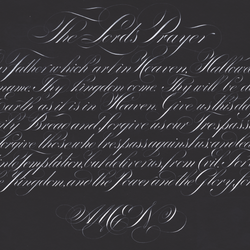 The Lord's Prayer
our father which art in Heaven, Hallowed
name. Thy Kingdom come. Thy will be
Earth as it is in Heaven. Give us this
Bread and forgive us our Trespass
forgive those who trespass against us, and
Temptation, but deliver us from
Kingdom, and the Power and the Glory, for
AMEN